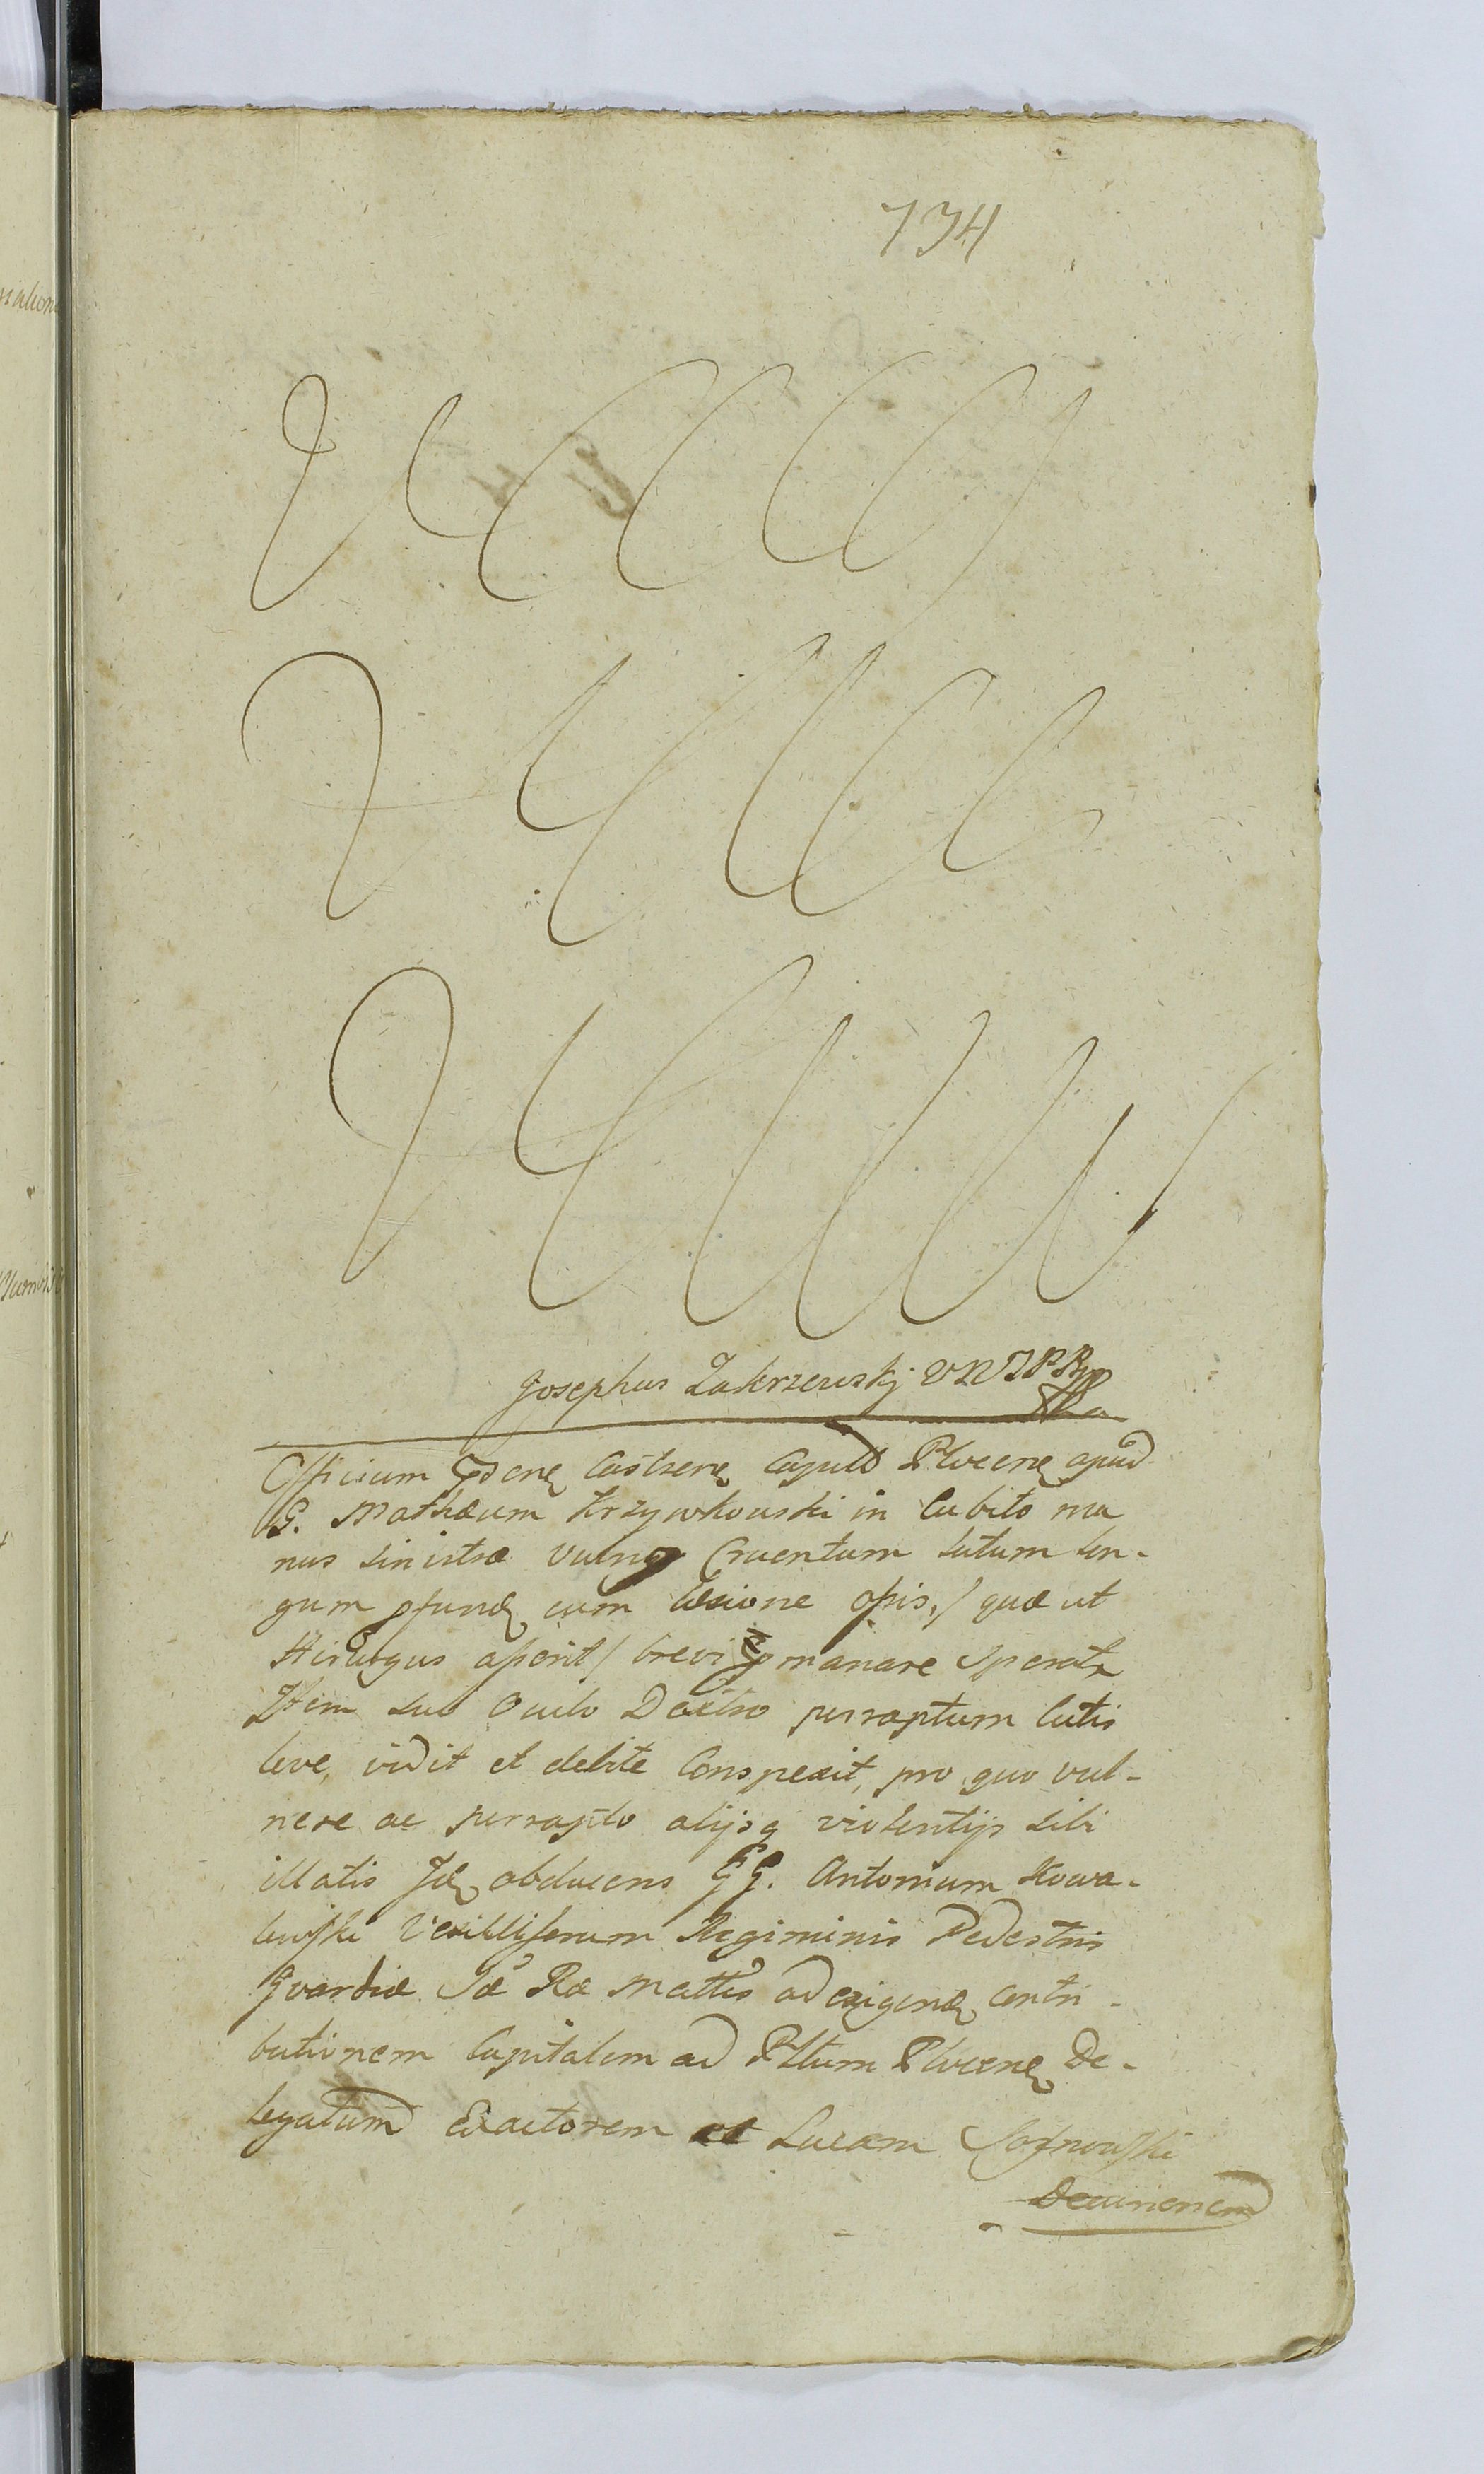 734
Josephus Zakrzewskj VRTPR
Officium Castren Capit Plocen apud
G. Mathæum Krzywkowski in Cubito ma
nus sinistræ vulnq Cruentum lutum lon-
gum pfund cum læsione oßis, / quæ ut
Hirurgus aßerit / brevi manare Sperat
Item sub Oculo Dextro perraptum Cutis
leve, vidit et debite Conspexit, pro quo vul-
nere ac perrapto alijsq violentijs sibi
illatis Id obducens GG. Antonium Kowa-
lewski Vexilliferum Regiminis Pedestris
Gvardiæ Sæ Ræ Mattis ad exigend contri-
butionem Capitalem ad Pltum Plocen De-
legatum Exactorem et Lucam